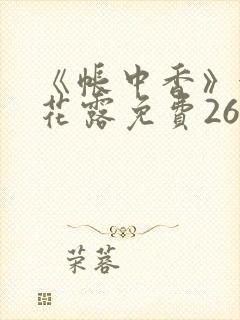 《帐中香》
花露免費26
荣蓉